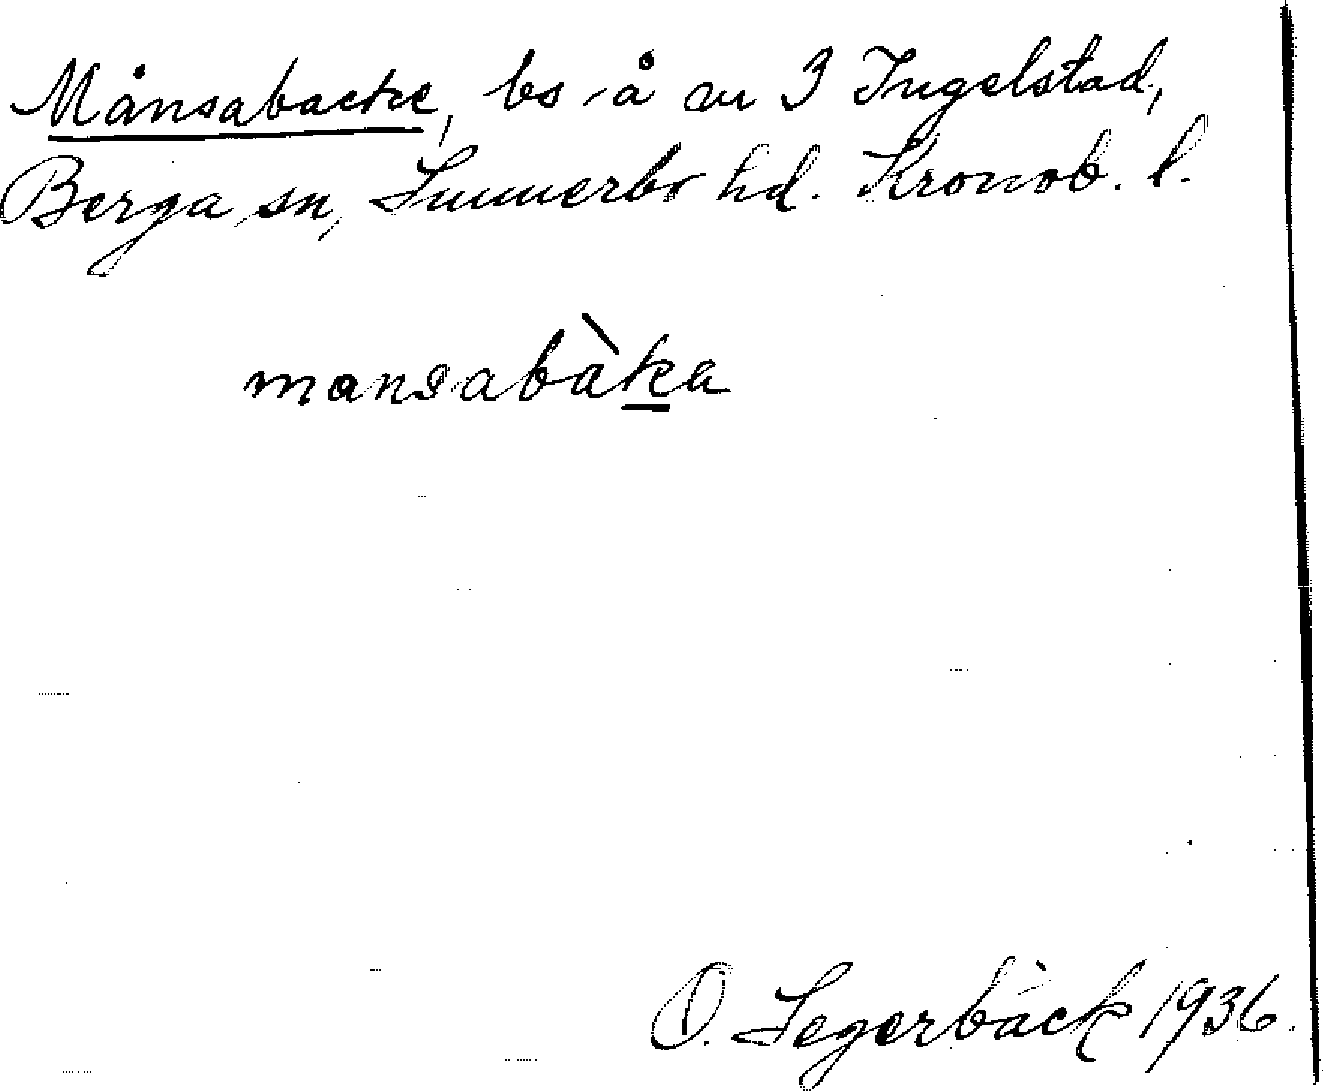 Månsabacke, bs å nr 3 Ingelstad,
Berga sn, Sunnerbo hd. Kronob. l.
mansabàka
O. Segerbäck 1936.